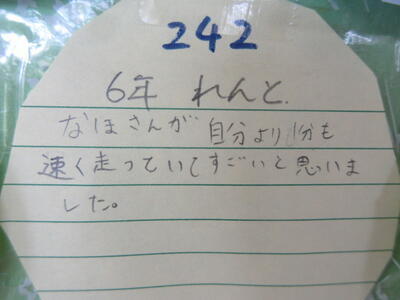 242
6年 れんと.
なほさんが 自分より1分も
速く走っていてすごいと思いま
した。